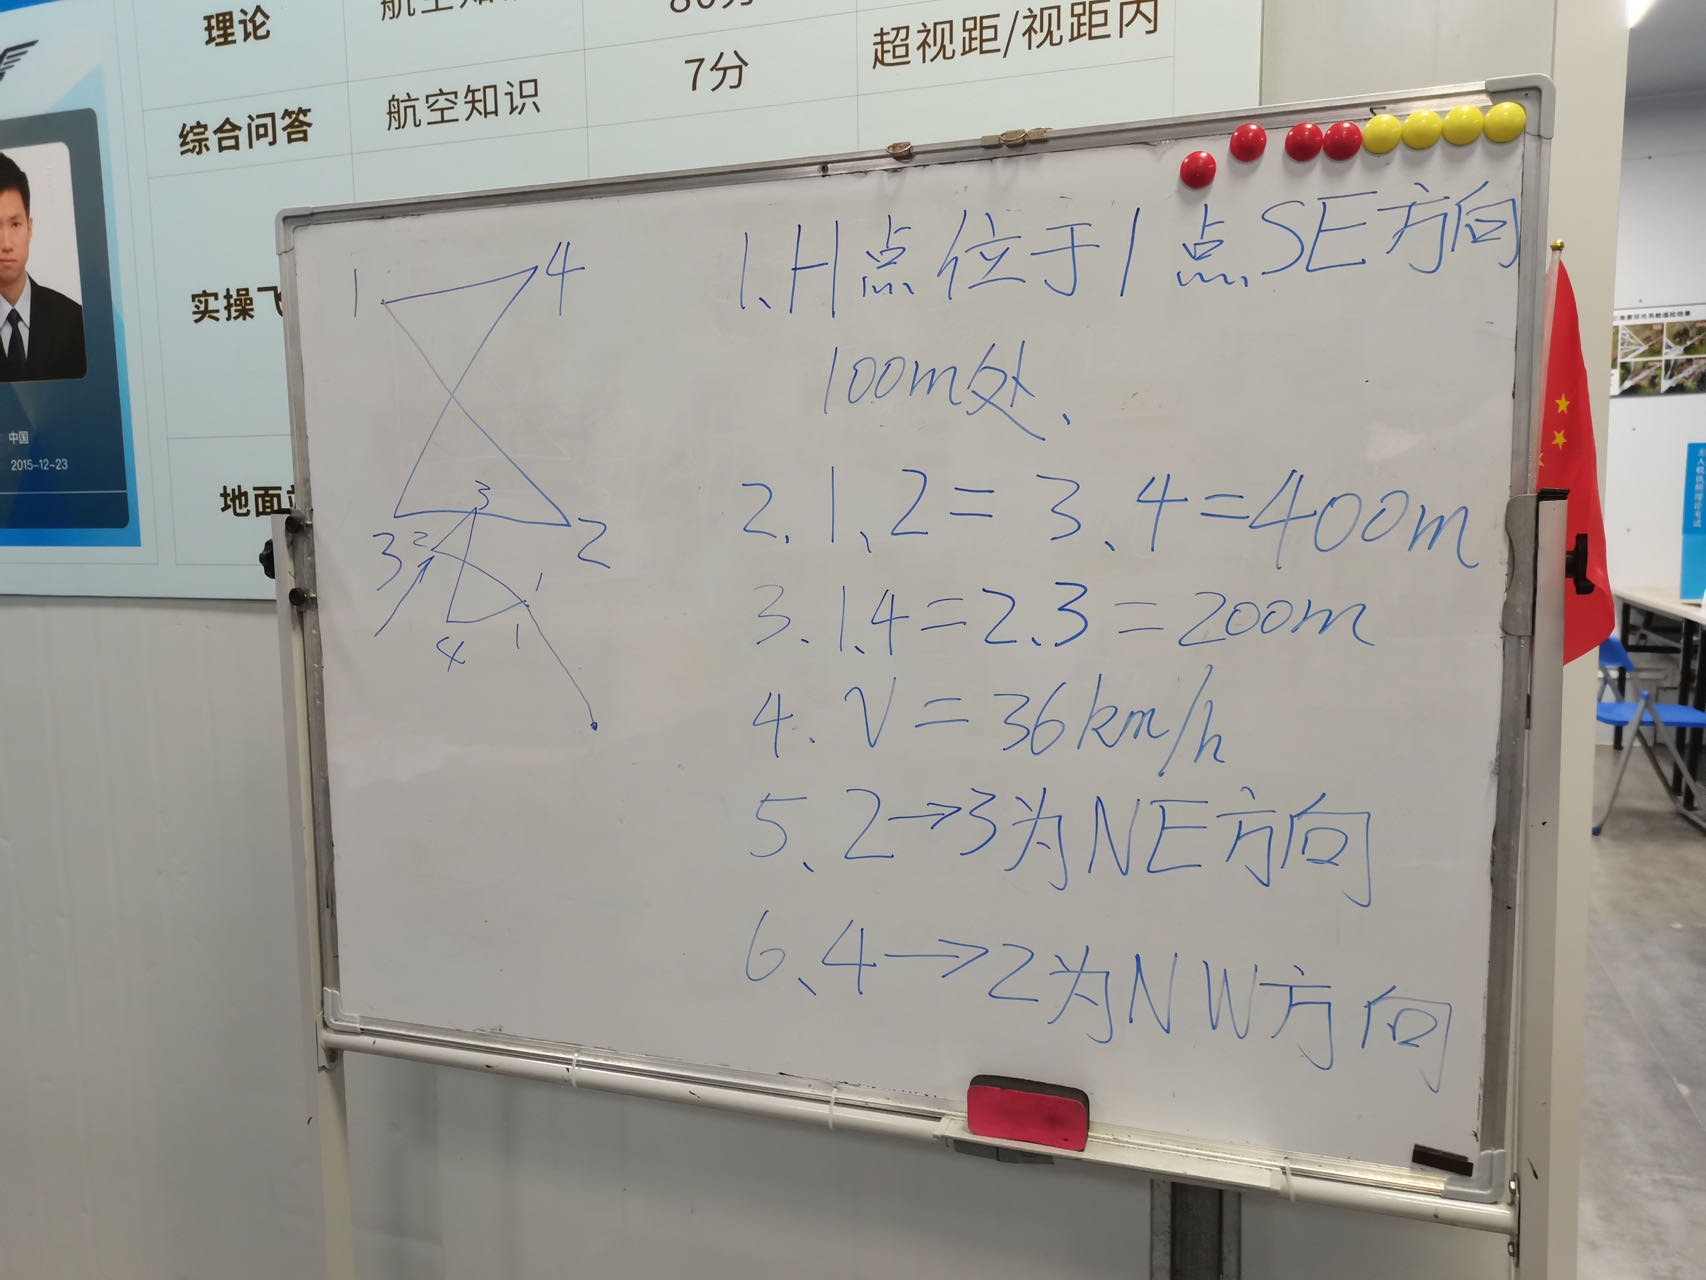 理论
综合问答
航空知识
7分
超视距/视距内
中国
2015-12-23
1 4
3 2
3
2
1
4 1
1、H点位于1点SE方向
100m处、
2. 1、2 = 3、4 = 400m
3. 1.4 = 2.3 = 200m
4. V = 36km/h
5、2→3为NE方向
6、4→2为NW方向